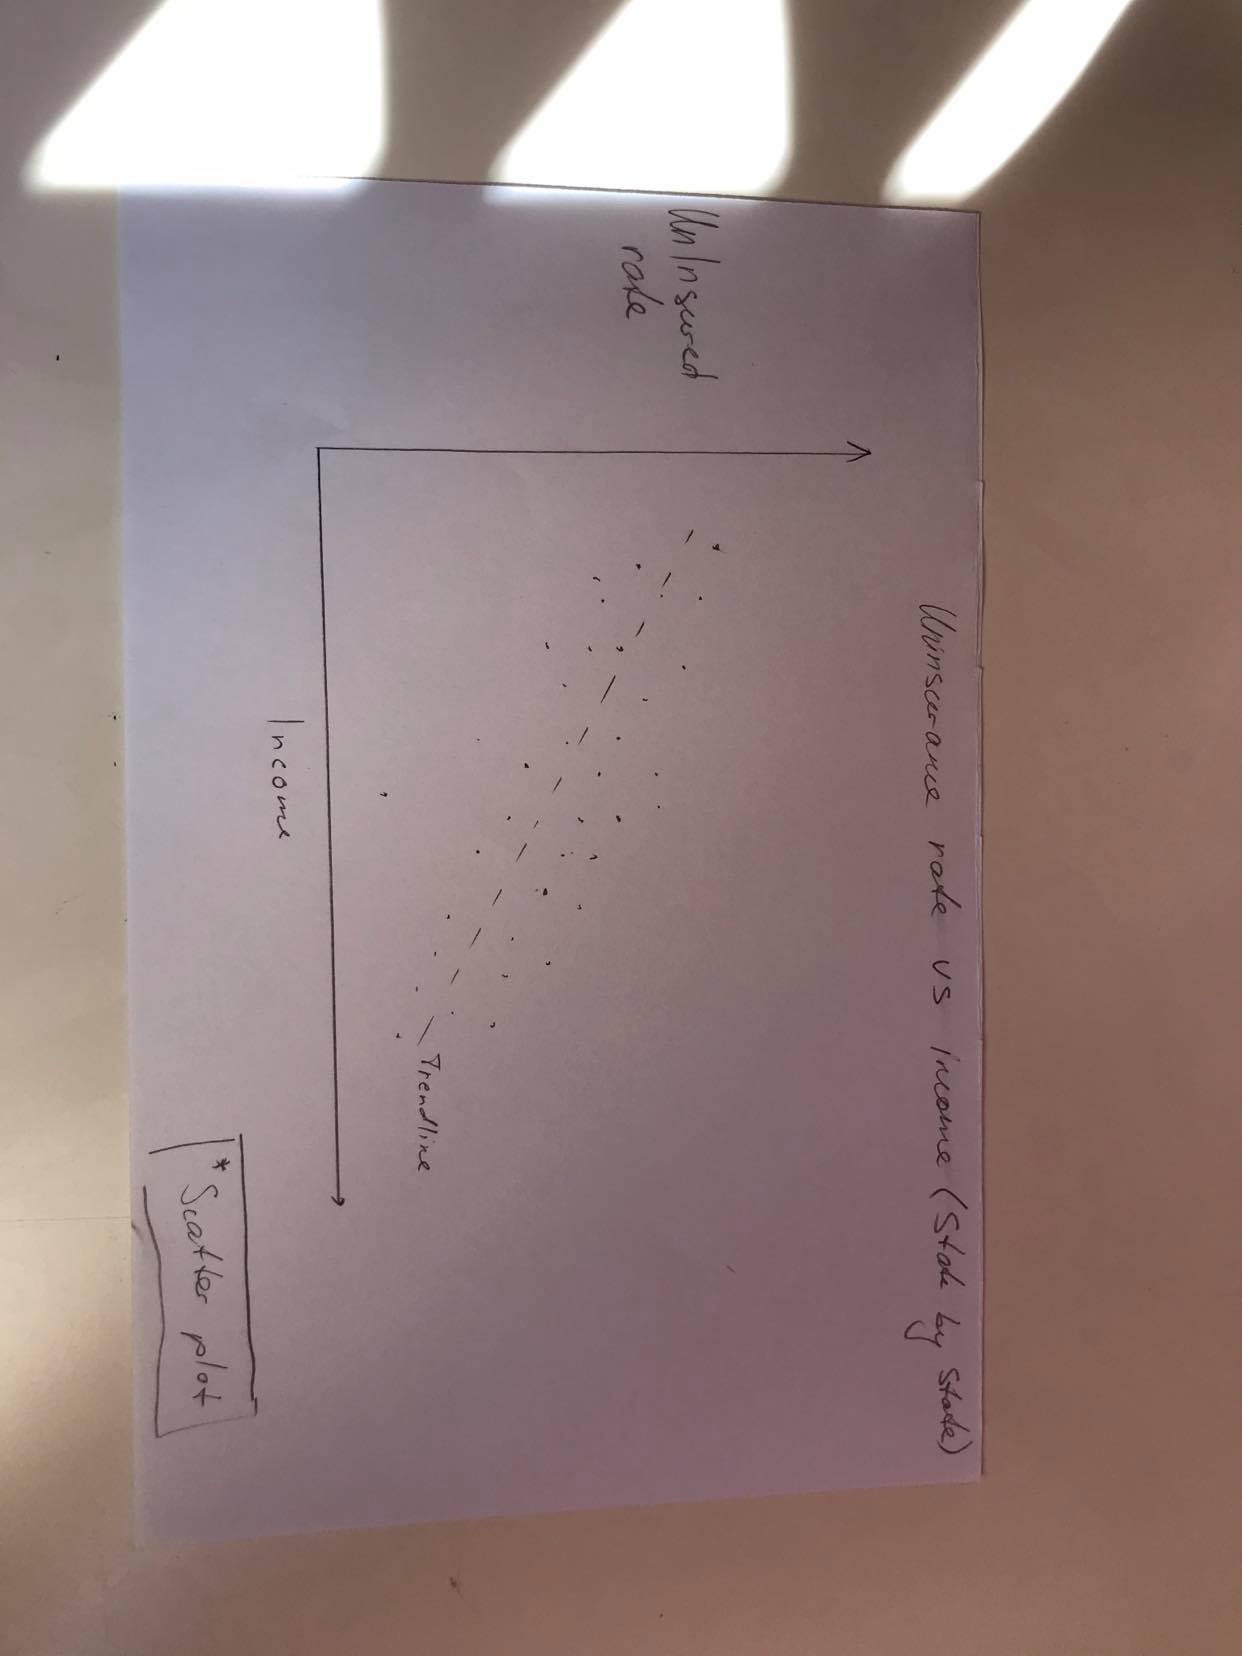 Uninsurance rate vs Income (State by State)
UnInsured
rate
Trendline
Income
*Scatter plot